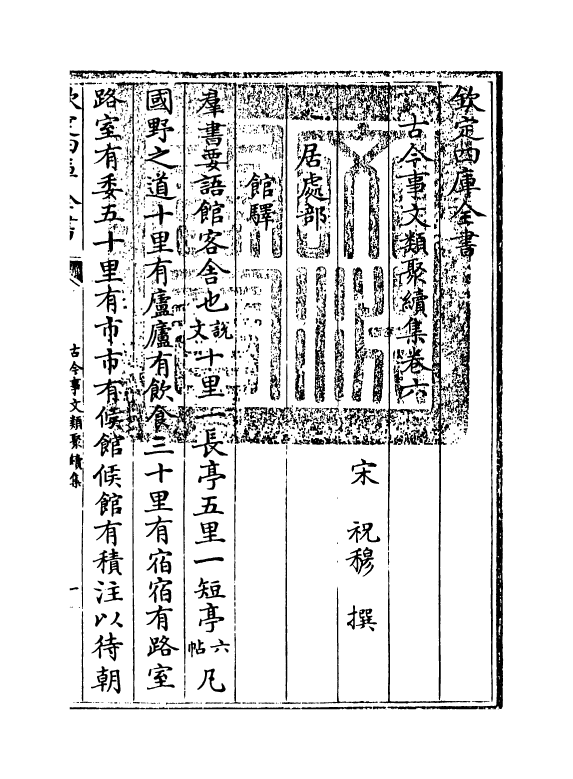 欽定四庫全書
古今事文類聚續集卷六
宋 祝穆 撰
居處部
館驛
羣書要語館客舍也說文十里一長亭五里一短亭六帖凡
國野之道十里有廬廬有飲食三十里有宿宿有路室
路室有委五十里有市市有候館候館有積注以待朝
欽定四庫全書
古今事文類聚續集
一